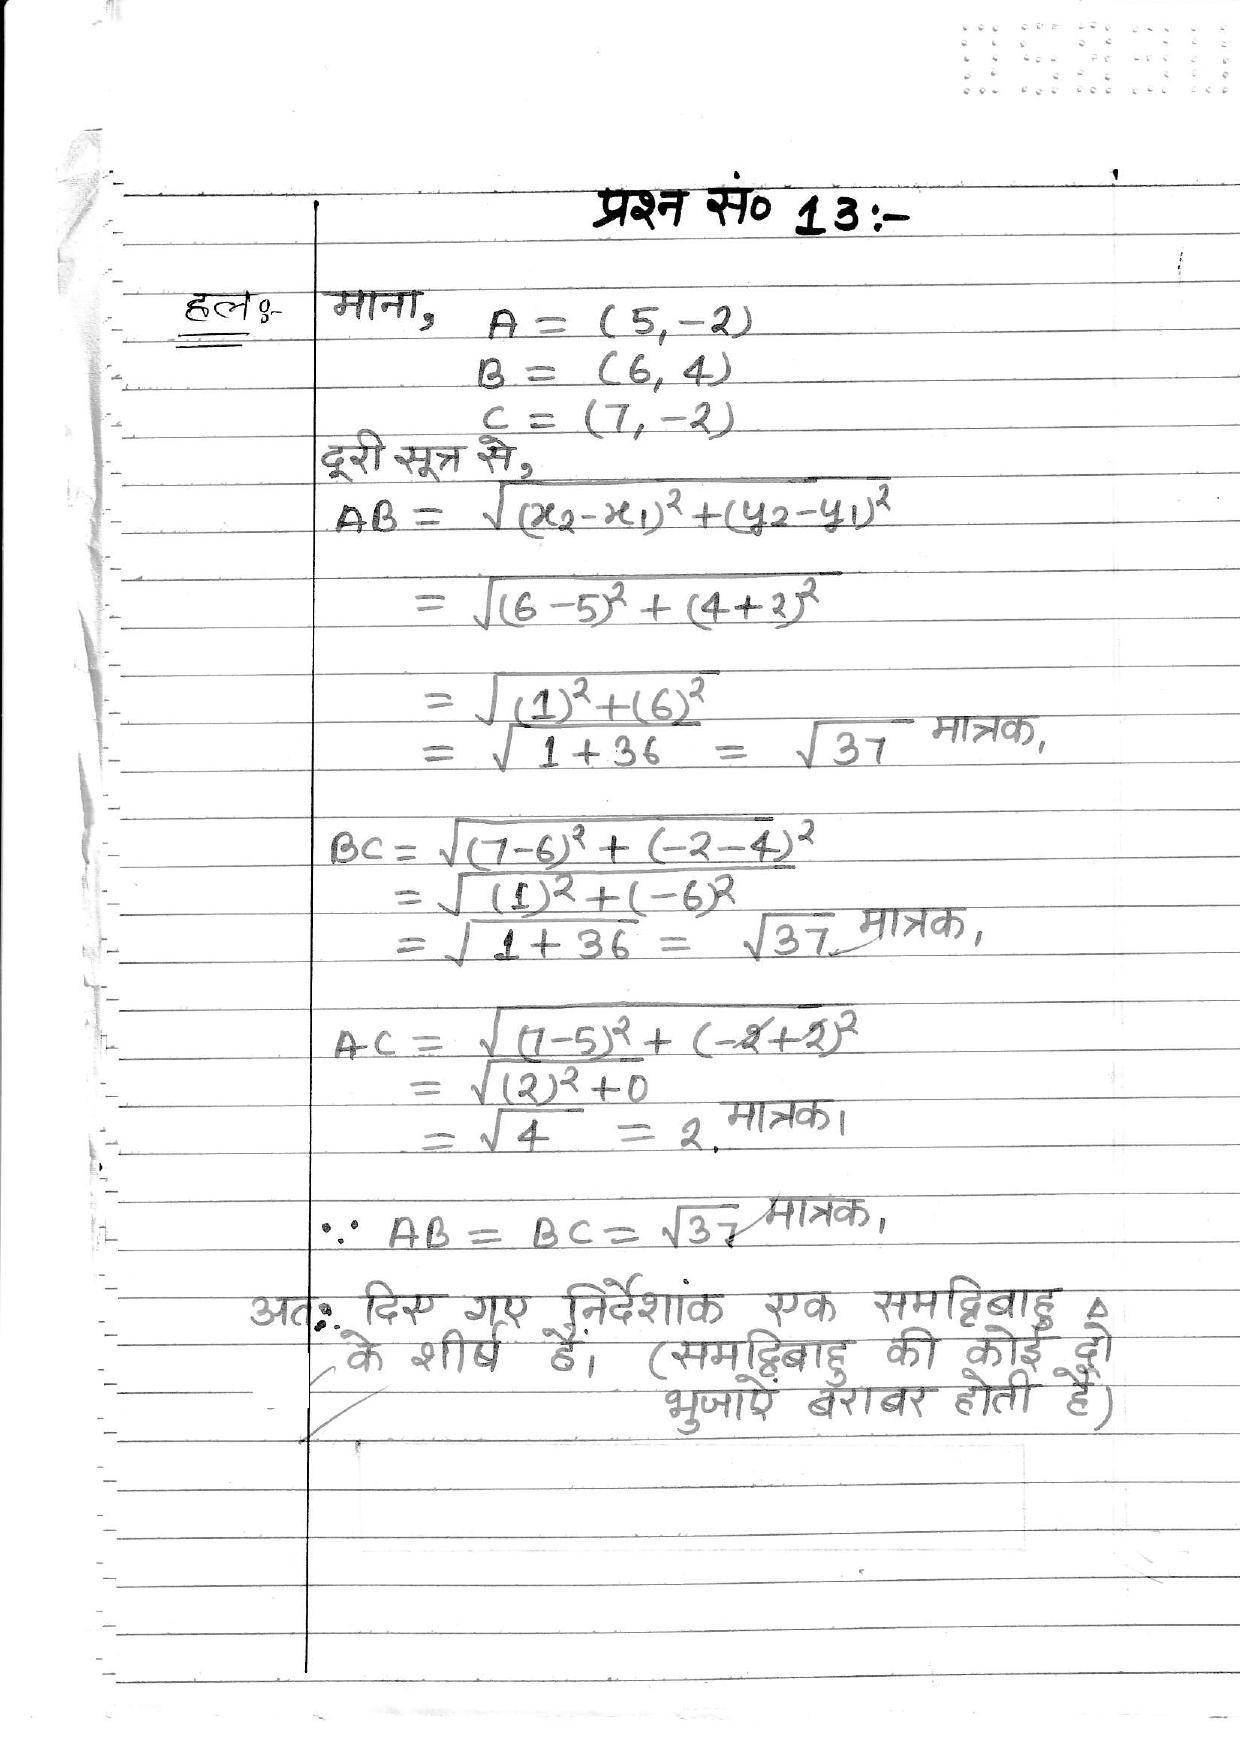 प्रश्न सं० 13:-
हल:- माना, A = (5, -2)
B = (6, 4)
C = (7, -2)
दूरी सूत्र से,
AB = √(x₂-x₁)² + (y₂-y₁)²
= √(6-5)² + (4+2)²
= √(1)² + (6)²
= √1+36 = √37 मात्रक,
BC = √(7-6)² + (-2-4)²
= √(1)² + (-6)²
= √1+36 = √37 मात्रक,
AC = √(7-5)² + (-2+2)²
= √(2)² + 0
= √4 = 2. मात्रक।
∵ AB = BC = √37 मात्रक,
अतः दिए गए निर्देशांक एक समद्विबाहु Δ
के शीर्ष हैं। (समद्विबाहु की कोई दो
भुजाऐं बराबर होती हैं)